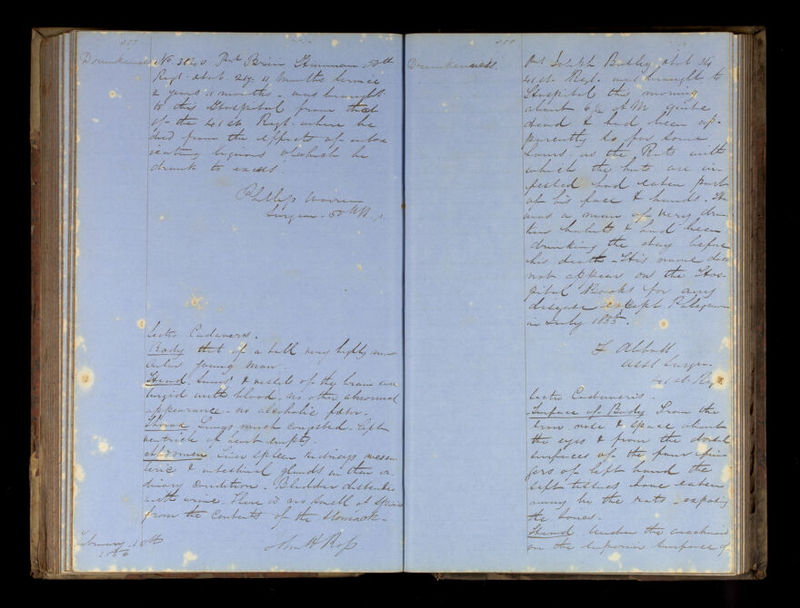 Drunkenness
No Pvt Hinnman th
Regt. 11 months service
2 years 11 months. was brought
to this Hospital from that
of the 41st Regt. where he
died from the effects of intox
icating liquors of which he
drank to excess.
Phillip
Surgeon. 50
Sectio Cadaveris.
Body that of a tall very highly mus
cular young man.
Head Sinus & vessels of the brain are
turgid with blood. no other abnormal
appearance. no alcoholic
Thorax Lungs much congested. Left
ventricle of heart empty.
Abdomen Liver Spleen Kidneys mesen
teric & intestinal glands in their or
dinary condition. Bladder distended
with urine. There is no smell of
from the contents of the stomach.
Ross
Drunkenness.
Pvt Joseph
41st Regt. was brought to
Hospital this morning
about 6½ AM quite
dead & had been ap-
parently so for some
hours. as the Rats with
which the huts are in
fested had eaten parts
of his face & hands. He
was a man of very drun
ken habits & had been
drinking the day before
his death. His name does
not appear on the Hos-
pital Books for any
disease except
in July 1855.
F Abbott
Asst Surgeon
41st Regt
Sectio Cadaveris.
Surface of Body From the
nose & space about
the eyes & from the dorsal
surfaces of the four fin
gers of left hand the
soft tissues have eaten
away by the rats. exposing
the bones.
Head Under the arachnoid
on the superior surface of